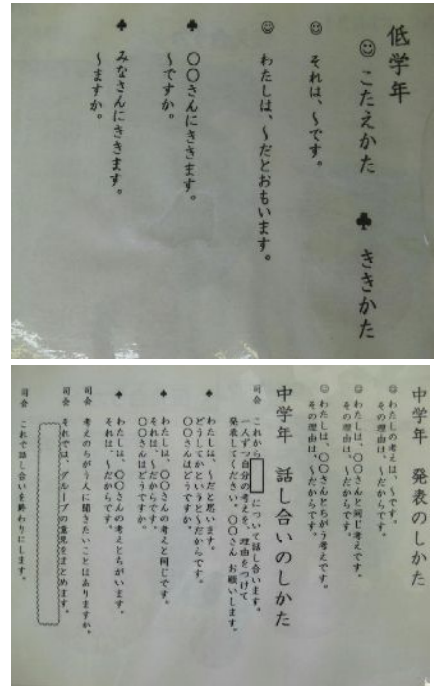 低学年
☺ こたえかた ♣ ききかた
☺ それは、~です。
☺ わたしは、~だとおもいます。
♣ 〇〇さんにききます。
~ですか。
♣ みなさんにききます。
~ますか。
中学年 発表のしかた
☺ わたしの考えは、~です。
その理由は、~だからです。
☺ わたしは、〇〇さんと同じ考えです。
その理由は、~だからです。
☺ わたしは、〇〇さんとちがう考えです。
その理由は、~だからです。
中学年 話し合いのしかた
司会 これから について話し合います。
一人ずつ自分の考えを、理由をつけて
発表してください。〇〇さん お願いします。
♠ わたしは、~だと思います。
どうしてかというと~だからです。
〇〇さんはどうですか。
♠ わたしは、〇〇さんの考えと同じです。
それは、~だからです。
〇〇さんはどうですか。
♠ わたしは、〇〇さんの考えとちがいます。
それは、~だからです。
司会 考えのちがう人に聞きたいことはありますか。
司会 それでは、グループの意見をまとめます。
司会 これで話し合いを終わりにします。